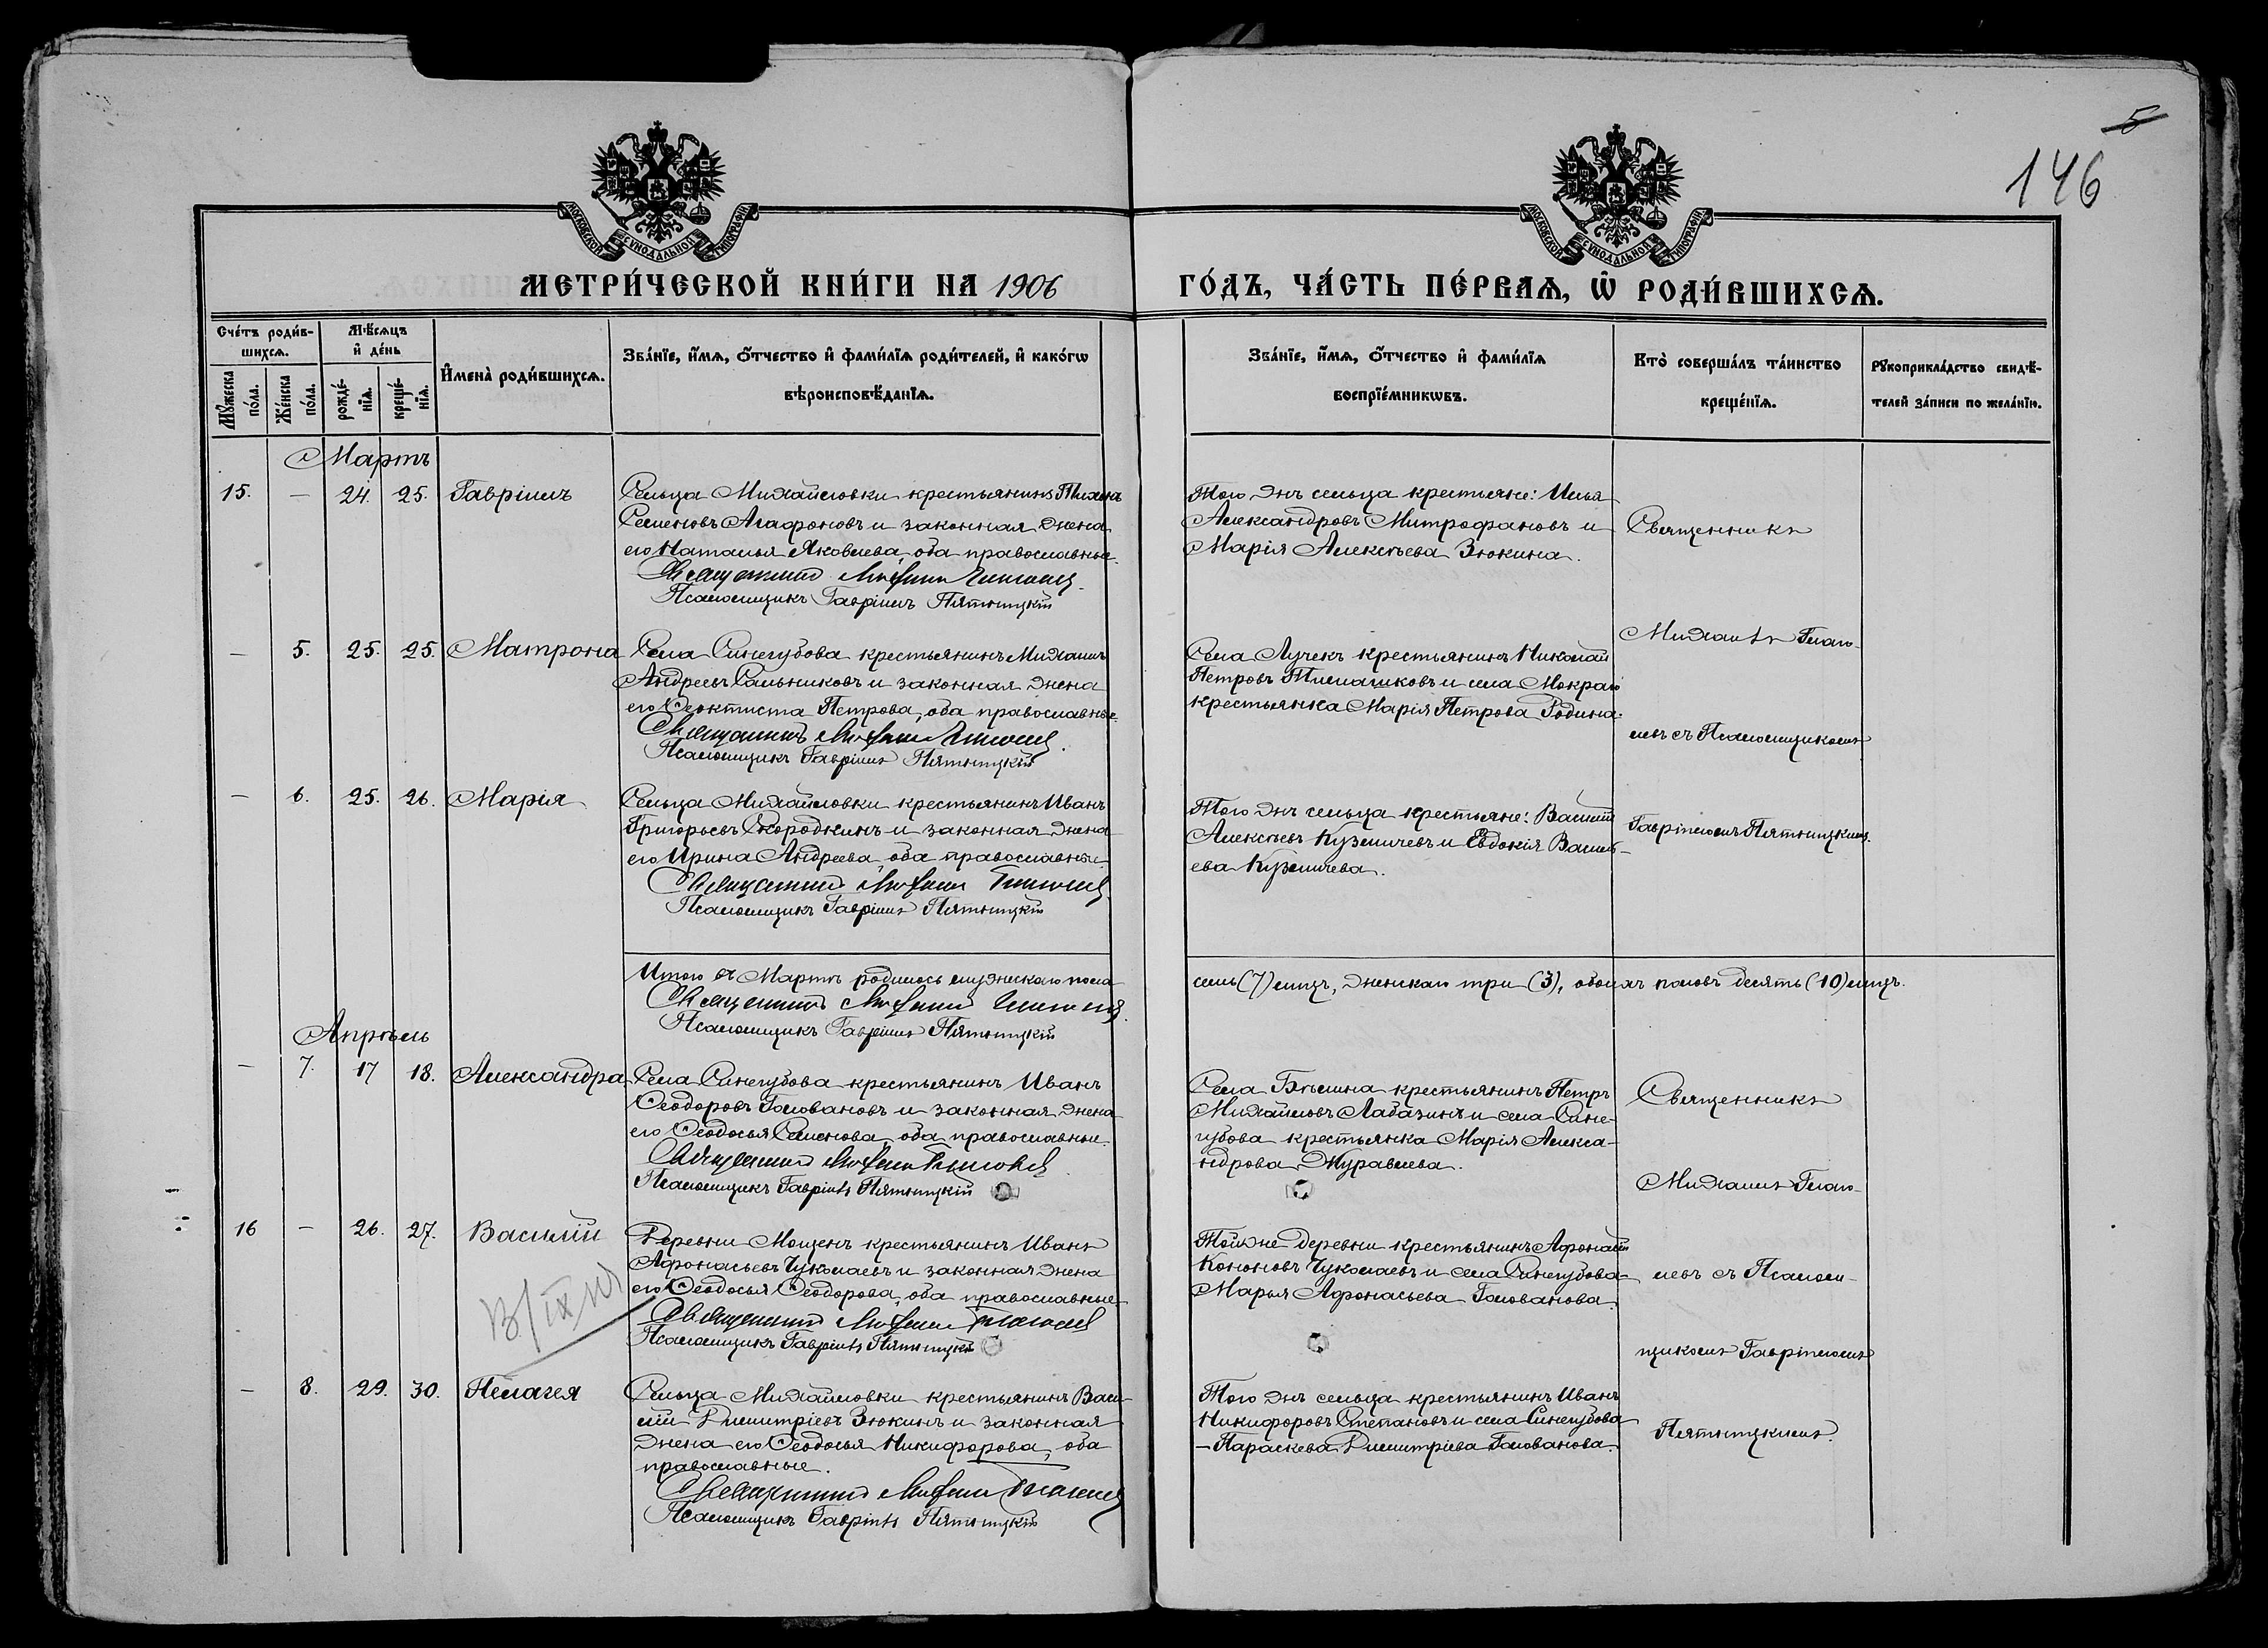 5
146
МОСКОВСКОЙ СѴНОДАЛЬНОЙ ТИПОГРАФІИ
МОСКОВСКОЙ СѴНОДАЛЬНОЙ ТИПОГРАФІИ
МЕТРИ́ЧЕСКОЙ КНИ́ГИ НА 1906 ГО́ДЪ, ЧА́СТЬ ПЕ́РВАѦ, Ѡ҆ РОДИ́ВШИХСѦ.
Сче́тъ роди́в-
шихсѧ.
Мꙋ́жеска по́ла.
Же́нска по́ла.
Мѣ́сѧцъ
и҆ де́нь
рожде́-
нїѧ.
креще́-
нїѧ.
И҆мена̀ роди́вшихсѧ.
Зва́нїе, и҆́мѧ, ѻ҆́тчество и҆ фами́лїѧ роди́телей, и҆ како́гѡ
вѣроисповѣ́данїѧ.
Зва́нїе, и҆́мѧ, ѻ҆́тчество и҆ фами́лїѧ
воспрїе́мникѡвъ.
Кто̀ соверша́лъ та́инство
креще́нїѧ.
Рꙋкоприкла́дство свидѣ́-
телей за́писи по жела́нїю.
Мартъ
15. — 24. 25. Гавріилъ
Сельца Михайловки крестьянинъ Тихонъ
Семеновъ Агафоновъ и законная жена
его Наталья Яковлева, оба православные.
Священникъ Михаилъ Глаголевъ
Псаломщикъ Гавріилъ Пятницкій
Того же сельца крестьяне: Илья
Александровъ Митрофановъ и
Марія Алексѣева Зюкина.
Священникъ
— 5. 25. 25. Матрона
Села Синегубова крестьянинъ Михаилъ
Андреевъ Сальниковъ и законная жена
его Ѳеоктиста Петрова, оба православные.
Священникъ Михаилъ Глаголевъ
Псаломщикъ Гавріилъ Пятницкій
Села Лучекъ крестьянинъ Николай
Петровъ и села Мокраго
крестьянка Марія Петрова Родина.
Михаилъ Глаго-
левъ съ Псаломщикомъ
— 6. 25. 26. Марія
Сельца Михайловки крестьянинъ Иванъ
Григорьевъ Скородкинъ и законная жена
его Ирина Андреева, оба православные.
Священникъ Михаилъ Глаголевъ
Псаломщикъ Гавріилъ Пятницкій
Того же сельца крестьяне: Василій
Алексѣевъ Кузмичевъ и Евдокія Василь-
ева Кузмичева.
Гавріиломъ Пятницкимъ.
Итого въ Мартѣ родилось мужескаго пола
семь (7) лицъ, женскаго три (3), обоихъ половъ десять (10) лицъ.
Священникъ Михаилъ Глаголевъ
Псаломщикъ Гавріилъ Пятницкій
Апрѣль
— 7. 17 18. Александра
Села Синегубова крестьянинъ Иванъ
Ѳеодоровъ Головановъ и законная жена
его Ѳеодосья Семенова, оба православные.
Священникъ Михаилъ Глаголевъ
Псаломщикъ Гавріилъ Пятницкій
Села крестьянинъ Петръ
Михайловъ Лабазинъ и села Сине-
губова крестьянка Марія Алекса-
ндрова Журавлева.
Священникъ
Михаилъ Глаго-
16 — 26. 27. Василій
Деревни Мощенъ крестьянинъ Иванъ
Афонасьевъ Чуколаевъ и законная жена
его Ѳеодосья Ѳеодорова, оба православные.
Священникъ Михаилъ Глаголевъ
Псаломщикъ Гавріилъ Пятницкій
Той же деревни крестьянинъ Афонасій
Кононовъ Чуколаевъ и села Синегубова
Марья Афонасьева Голованова.
левъ съ Псалом-
щикомъ Гавріиломъ
— 8. 29. 30. Пелагея
Сельца Михайловки крестьянинъ Васи-
лій Димитріевъ Зюкинъ и законная
жена его Ѳеодосья Никифорова, оба
православные.
Священникъ Михаилъ Глаголевъ
Псаломщикъ Гавріилъ Пятницкій
Того же сельца крестьянинъ Иванъ
Никифоровъ Степановъ и села Синегубова
— Параскева Димитріева Голованова.
Пятницкимъ.